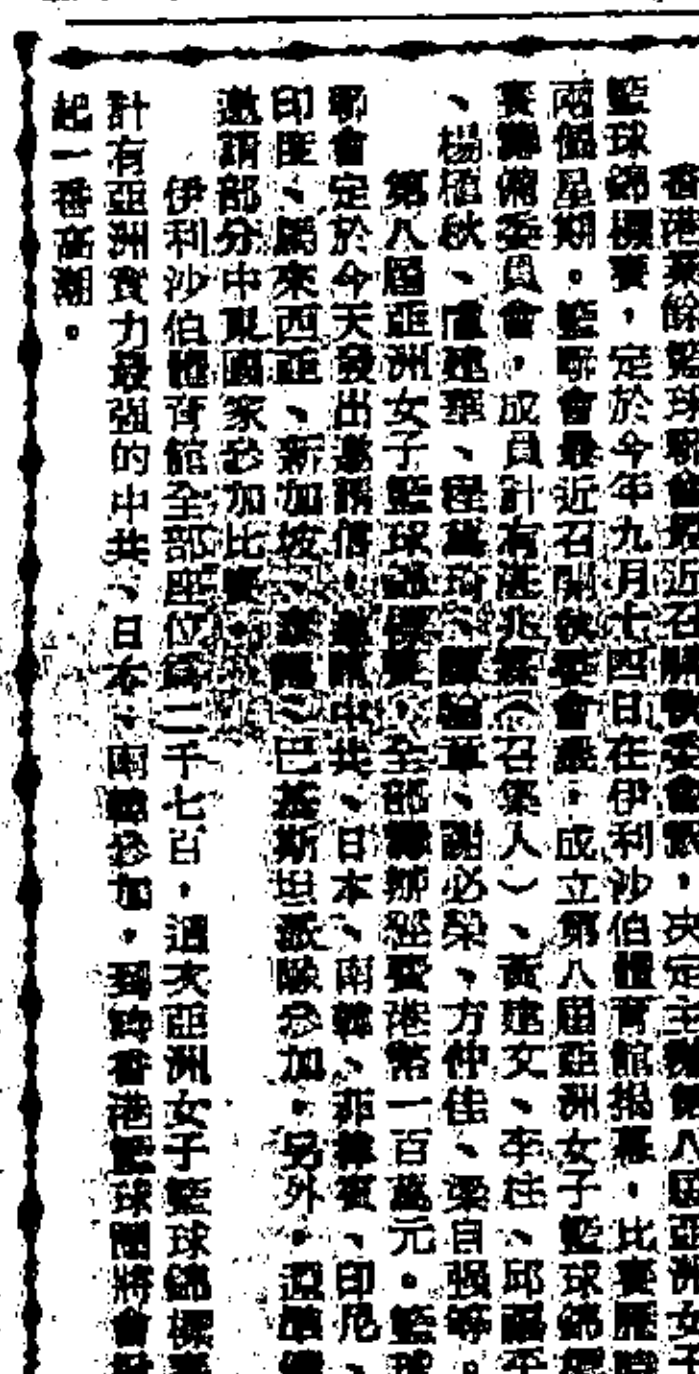 香港業餘籃球聯會最近召開執委會議，決定主辦第八屆亞洲女子
籃球錦標賽，定於今年九月十四日在伊利沙伯體育館揭幕，比賽歷時
兩個星期。籃聯會最近召開執委會議，成立第八屆亞洲女子籃球錦標
賽籌備委員會，成員計有 兆 （召集人）、黃建文、李柱、邱 平
、楊 秋、盧建華、程 、 、謝必榮、方仲佳、梁自强等。
第八屆亞洲女子籃球錦標賽，全部籌辦經費港幣一百萬元。籃球
聯會定於今天發出邀請信，邀請中共、日本、南韓、菲律賓、印尼、
印度、馬來西亞、新加坡、泰國、巴基斯坦派隊參加。另外，還準備
邀請部分中東國家參加比賽。
伊利沙伯體育館全部座位爲二千七百，這次亞洲女子籃球錦標賽
計有亞洲實力最强的中共、日本、南韓參加，到時香港籃球圈將會掀
起一番高潮。